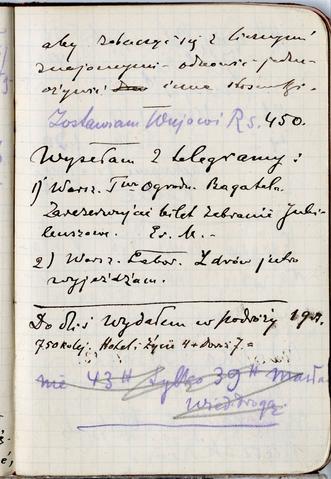 aby zobaczyć się z licznymi
znajomymi - odnowić - jedno-
ożywić inne stosunki.
Zostawiam Wujowi Rs. 450.
Wysyłam 2 telegramy:
1) Warsz. Tow Ogrodn. Bagatela.
Zarezerwujcie bilet zebranie Jubi-
leuszowe. Er. M. -
2) Warsz. Labor. Zdrów jutro
wyjeżdżam.
Do dziś wydałem w podróży 19
7.50 kolej. Hotel i życie 4 +
nie 43 tylko 39 M